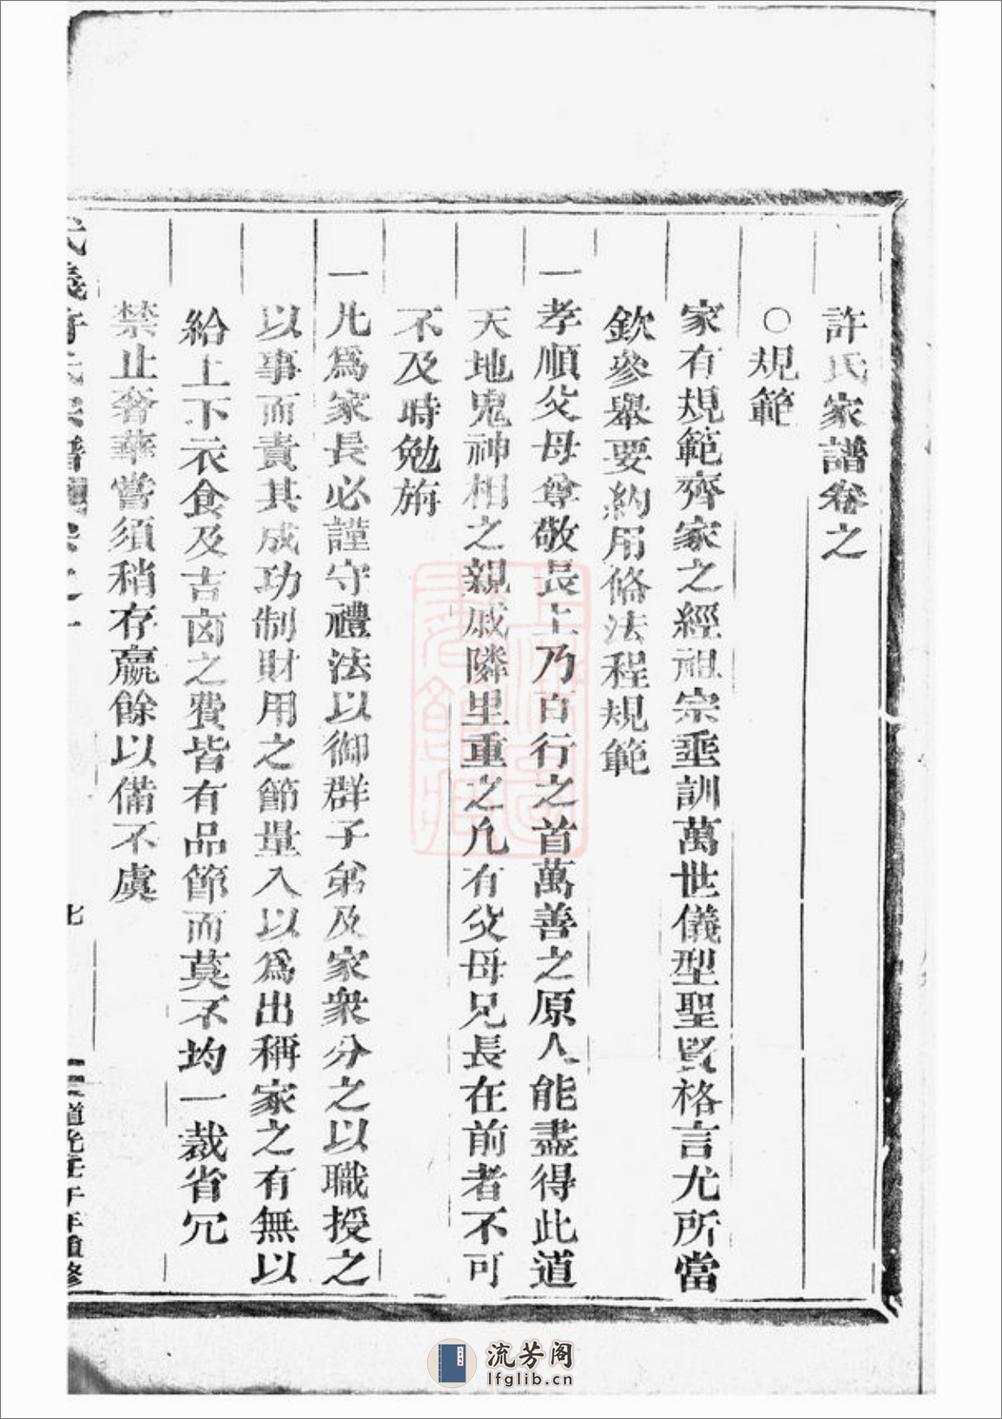 許氏家譜卷之
○規範
家有規範齊家之經祖宗垂訓萬世儀型聖賢格言尤所當
欽參舉要約用俻法程規範
一孝順父母尊敬長上乃百行之首萬善之原人能盡得此道
天地鬼神相之親戚隣里重之凡有父母兄長在前者不可
不及時勉旃
一凡爲家長必謹守禮法以御群子弟及家衆分之以職授之
以事而責其成功制財用之節量入以爲出稱家之有無以
給上下衣食及吉凶之費皆有品節而莫不均一裁省冗
禁止奢華嘗須稍存贏餘以備不虞
道光壬午年重修
流芳阁
lfglib.cn